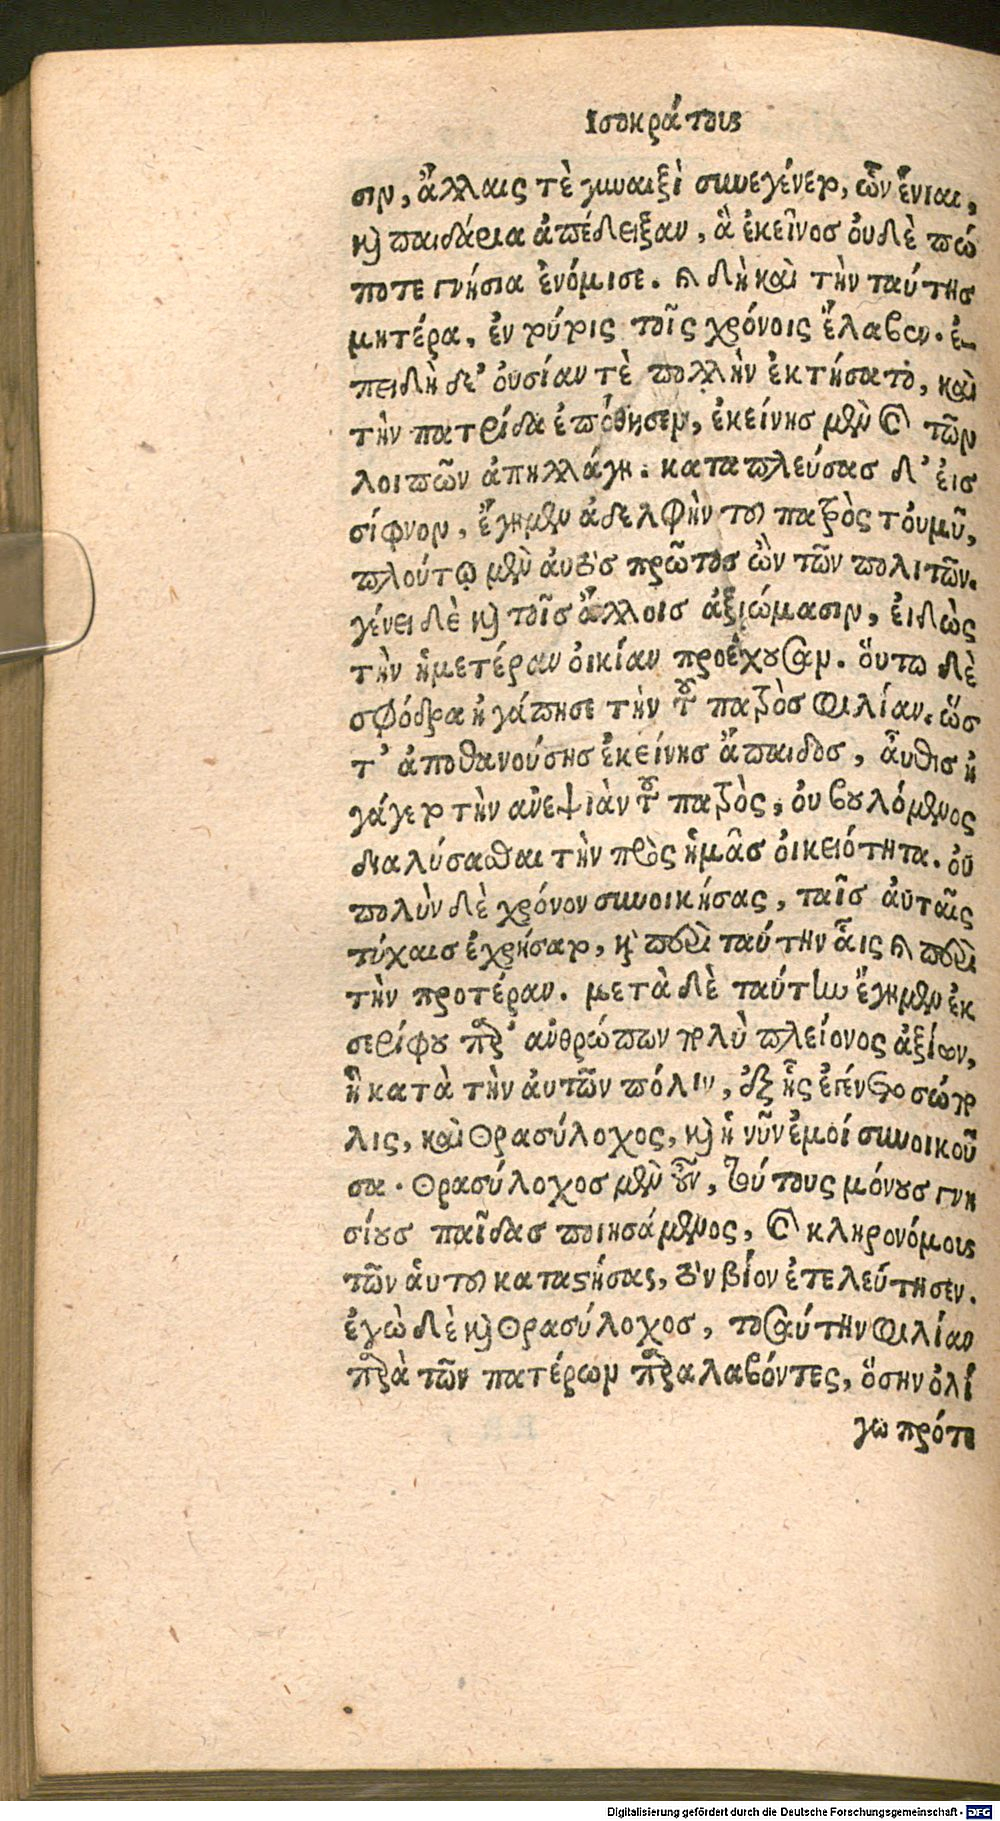 Ισοκράτους
σιν, ἄλλαις τὲ γυναιξὶ συνεγένετο, ὧν ἔνιαι,
καὶ παιδάρια ἀπέδειξαν, ἃ ἐκεῖνος ὀυδὲ πώ
ποτε γνήσια ἐνόμισε. καὶ δὴ καὶ τὴν ταύτης
μητέρα, ἐν τούτοις τοῖς χρόνοις ἔλαβεν. ἐ-
πειδὴ δε' ὀυσίαν τὲ πολλὴν ἐκτήσατο, καὶ
τὴν πατρίδα ἐπόθησεν, ἐκείνης μὲν καὶ τῶν
λοιπῶν ἀπηλλάγη. καταπλεύσας δ' ἐις
σίφνον, ἔγημεν ἀδελφὴν τοῦ πατρὸς τ̓ουμῦ,
πλούτῳ μὲν ἀυτὸς πρῶτος ὢν τῶν πολιτῶν.
γένει δὲ καὶ τοῖς ἄλλοις ἀξιώμασιν, ἐιδὼς
τὴν ἡμετέραν ὀικίαν προέχουσαν. ὅυτω δὲ
σφόδρα ἠγάπησε τὴν τοῦ πατρὸς φιλίαν. ὥσ
τ' ἀποθανούσης ἐκείνης ἄπαιδος, ἆυθις ἠ
γάγετο τὴν ἀνεψιὰν τοῦ πατρὸς, ὀυ βουλόμενος
διαλύσασθαι τὴν πρὸς ἡμᾶς ὀικειότητα. ὀυ
πολὺν δὲ χρόνον συνοικήσας, ταῖς ἀυταῖς
τύχαις ἐχρήσατο, καὶ περὶ ταύτην αἷς καὶ περὶ
τὴν προτέραν. μετὰ δὲ ταύτην ἔγημεν ἐκ
σερίφου παρ' ἀνθρώπων πολὺ πλείονος ἀξίων,
ἢ κατὰ τὴν ἀυτῶν πόλιν, ἐξ ἧς ἐγένετο σώπο
λις, καὶ Θρασύλοχος, καὶ ἡ νῦν ἐμοί συνοικοῦ
σα. Θρασύλοχος μὲν οὖν, τούτους μόνους γνη
σίους παῖδας ποιησάμενος, καὶ κληρονόμους
τῶν ἁυτοῦ καταστήσας, τὸν βίον ἐτελεύτησεν.
ἐγὼ δὲ καὶ Θρασύλοχος, τοσαύτην φιλίαν
παρὰ τῶν πατέρων παραλαβόντες, ὅσην ὀλί
γω πρότε
Digitalisierung gefördert durch die Deutsche Forschungsgemeinschaft - DFG